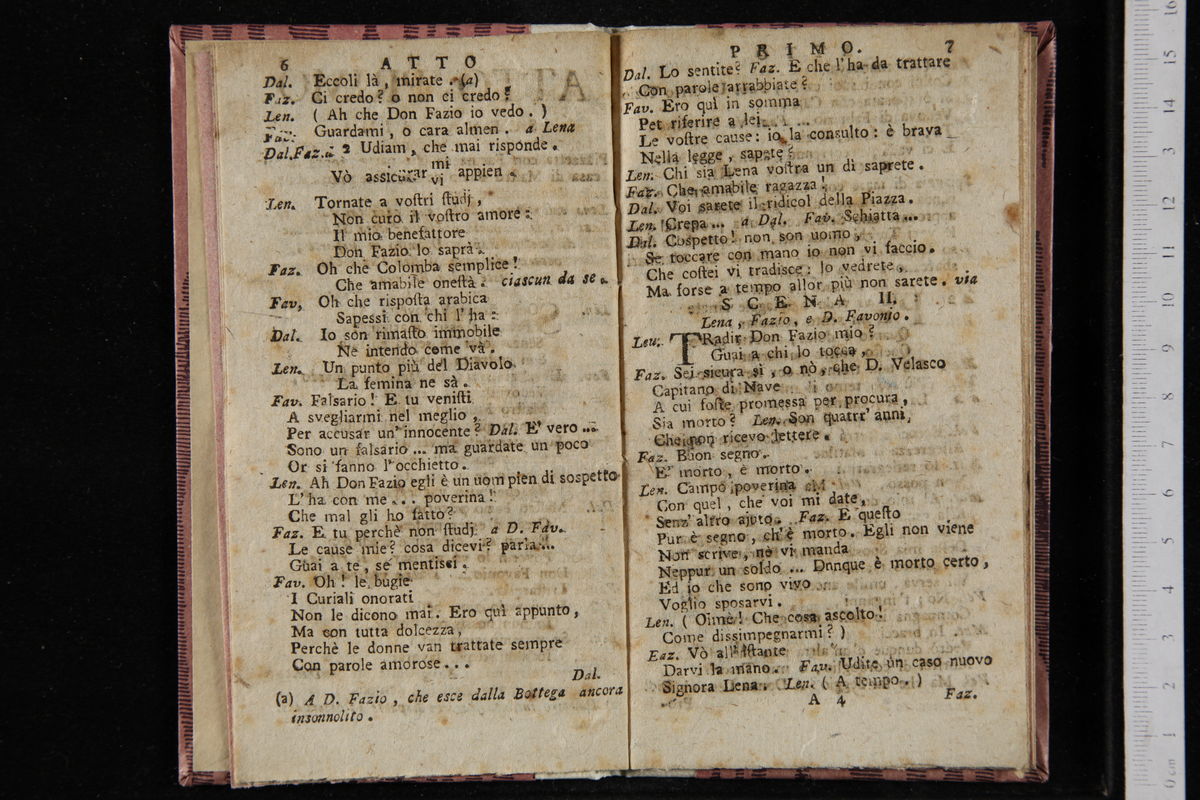 6 ATTO
Dal. Eccoli là, mirate. (a)
Faz. Ci credo? o non ci credo?
Len. ( Ah che Don Fazio io vedo. )
Fav. Guardami, o cara almen. a Lena
Dal.Faz.à 2 Udiam, che mai risponde.
Vò assicurar mi vi appien.
Len. Tornate a voſtri ſtudj,
Non curo il voſtro amore:
Il mio benefattore
Don Fazio lo saprà.
Faz. Oh chè Colomba semplice!
Che amabile oneſtà. ciascun da se.
Fav, Oh che risposta arabica
Sapessi con chi l'ha:
Dal. Io son rimaſto immobile
Nè intendo come và.
Len. Un punto più del Diavolo
La femina ne sà.
Fav. Falsario! E tu veniſti
A svegliarmi nel meglio,
Per accusar un'innocente? Dal. E' vero ...
Sono un falsario ... ma guardate un poco
Or si fanno l'occhietto.
Len. Ah Don Fazio egli è un uom pien di sospetto
L'ha con me... poverina!
Che mal gli ho fatto?
Faz. E tu perchè non ſtudj a D. Fav.
Le cause mie? cosa dicevi? parla...
Guai a te, se mentissi.
Fav. Oh! le bugie
I Curiali onorati
Non le dicono mai. Ero quì appunto,
Ma con tutta dolcezza,
Perchè le donne van trattate sempre
Con parole amorose...
Dal.
(a) A D. Fazio, che esce dalla Bottega ancora
insonnolito.
PRIMO. 7
Dal. Lo sentite? Faz. E che l'ha da trattare
Con parole arrabbiate?
Fav. Ero quì in somma
Pet riferire a lei
Le voſtre cause: io la consulto: è brava
Nella legge, sapete?
Len. Chi sia Lena voſtra un dì saprete.
Faz. Che amabile ragazza!
Dal. Voi sarete il ridicol della Piazza.
Len. Crepa... a Dal. Fav. Schiatta...
Dal. Cospetto! non son uomo,
Se toccare con mano io non vi faccio.
Che coſtei vi tradisce: lo vedrete,
Ma forse a tempo allor più non sarete. via
SCENA II.
Lena, Fazio, e D. Favonio.
Leu. TRadir Don Fazio mio?
Guai a chi lo tocca,
Faz. Sei sicura sì, o nò, che D. Velasco
Capitano di Nave
A cui foſte promessa per procura,
Sia morto? Len. Son quattr'anni,
Che non ricevo lettere.
Faz. Buon segno.
E' morto, è morto.
Len. Campo poverina
Con quel, che voi mi date,
Senz'altro ajuto. Faz. E queſto
Pur è segno, ch'è morto. Egli non viene
Non scrive, nè vi manda
Neppur un soldo ... Dnnque è morto certo,
Ed io che sono vivo
Voglio sposarvi.
Len. ( Oimè! Che cosa ascolto!
Come dissimpegnarmi? )
Eaz. Vò all'iſtante
Darvi la mano. Fav. Udite un caso nuovo
Signora Lena. Len. ( A tempo. )
A 4 Faz.